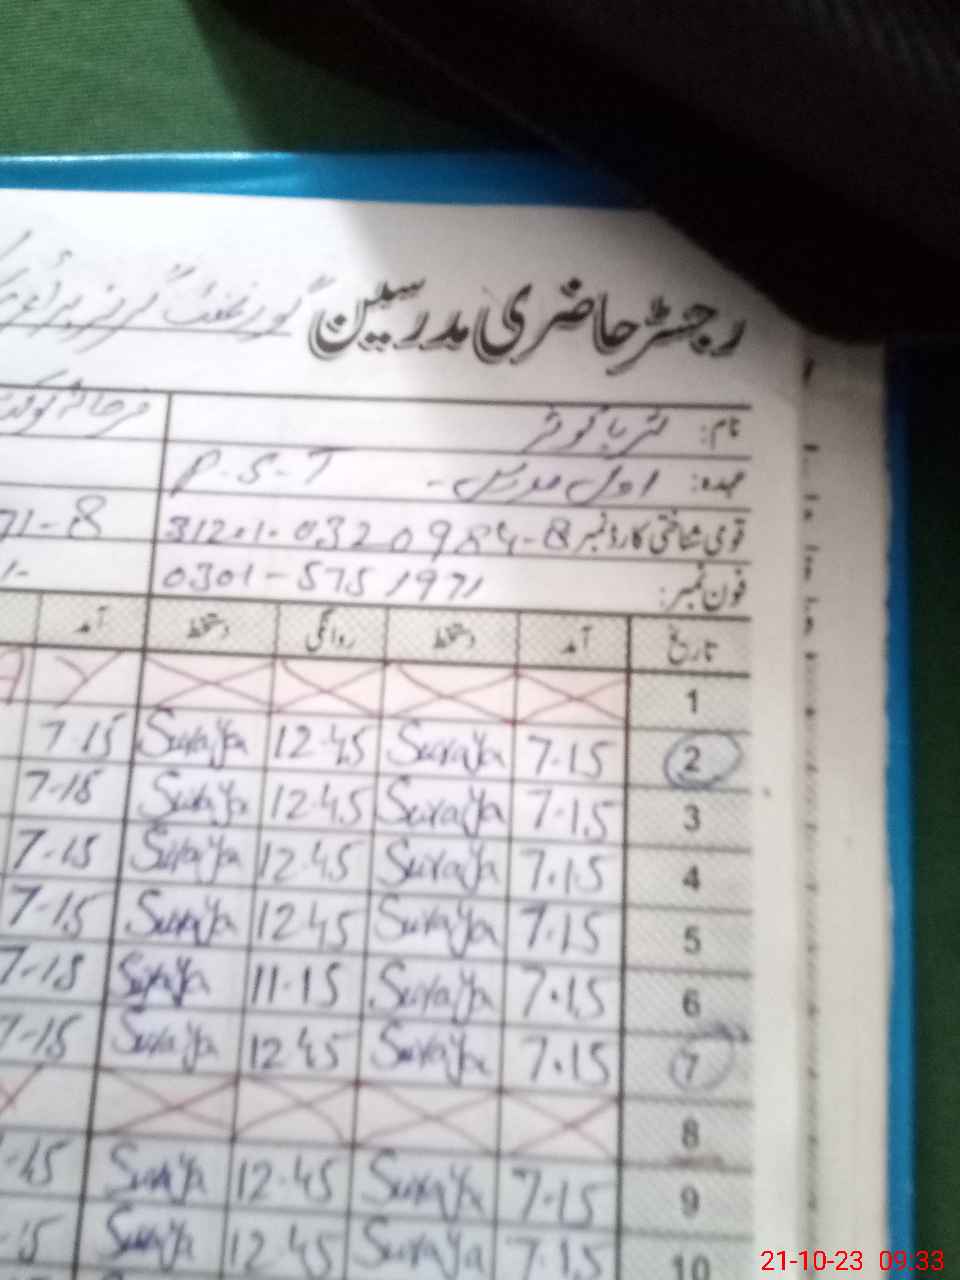 رجسٹر حاضری مدرسین گورنمنٹ گرلز پرائمری
نام: ثریا کوثر
عہدہ: اول مدرس - P.S.T
قومی شناختی کارڈ نمبر 31201-0320984-8 71-8
فون نمبر: 0301-5751971
تاریخ آمد دستخط روانگی دستخط آمد
1
2 7.15 Suraya 12.45 Suraya 7-15
3 7.15 Suraya 12.45 Suraya 7-15
4 7.15 Suraya 12.45 Suraya 7-15
5 7.15 Suraya 12.45 Suraya 7-15
6 7.15 Suraya 11.15 Suraya 7-15
7 7.15 Suraya 12.45 Suraya 7-15
8
9 7.15 Suraya 12.45 Suraya
10 7.15 Suraya 12.45 Suraya
21-10-23 09:33